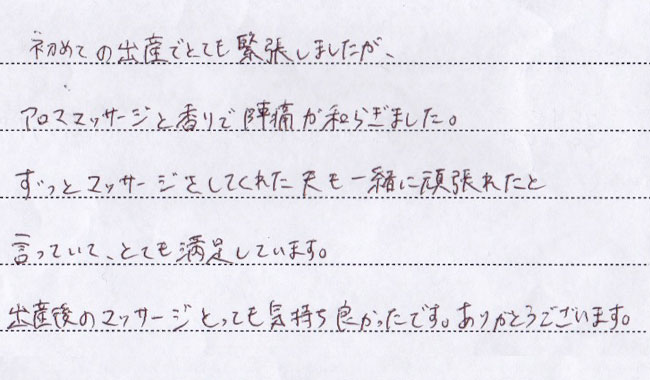 初めての出産でとても緊張しましたが、
アロママッサージと香りで陣痛が和らぎました。
ずっとマッサージをしてくれた夫も一緒に頑張れたと
言っていて、とても満足しています。
出産後のマッサージとっても気持ち良かったです。ありがとうございます。